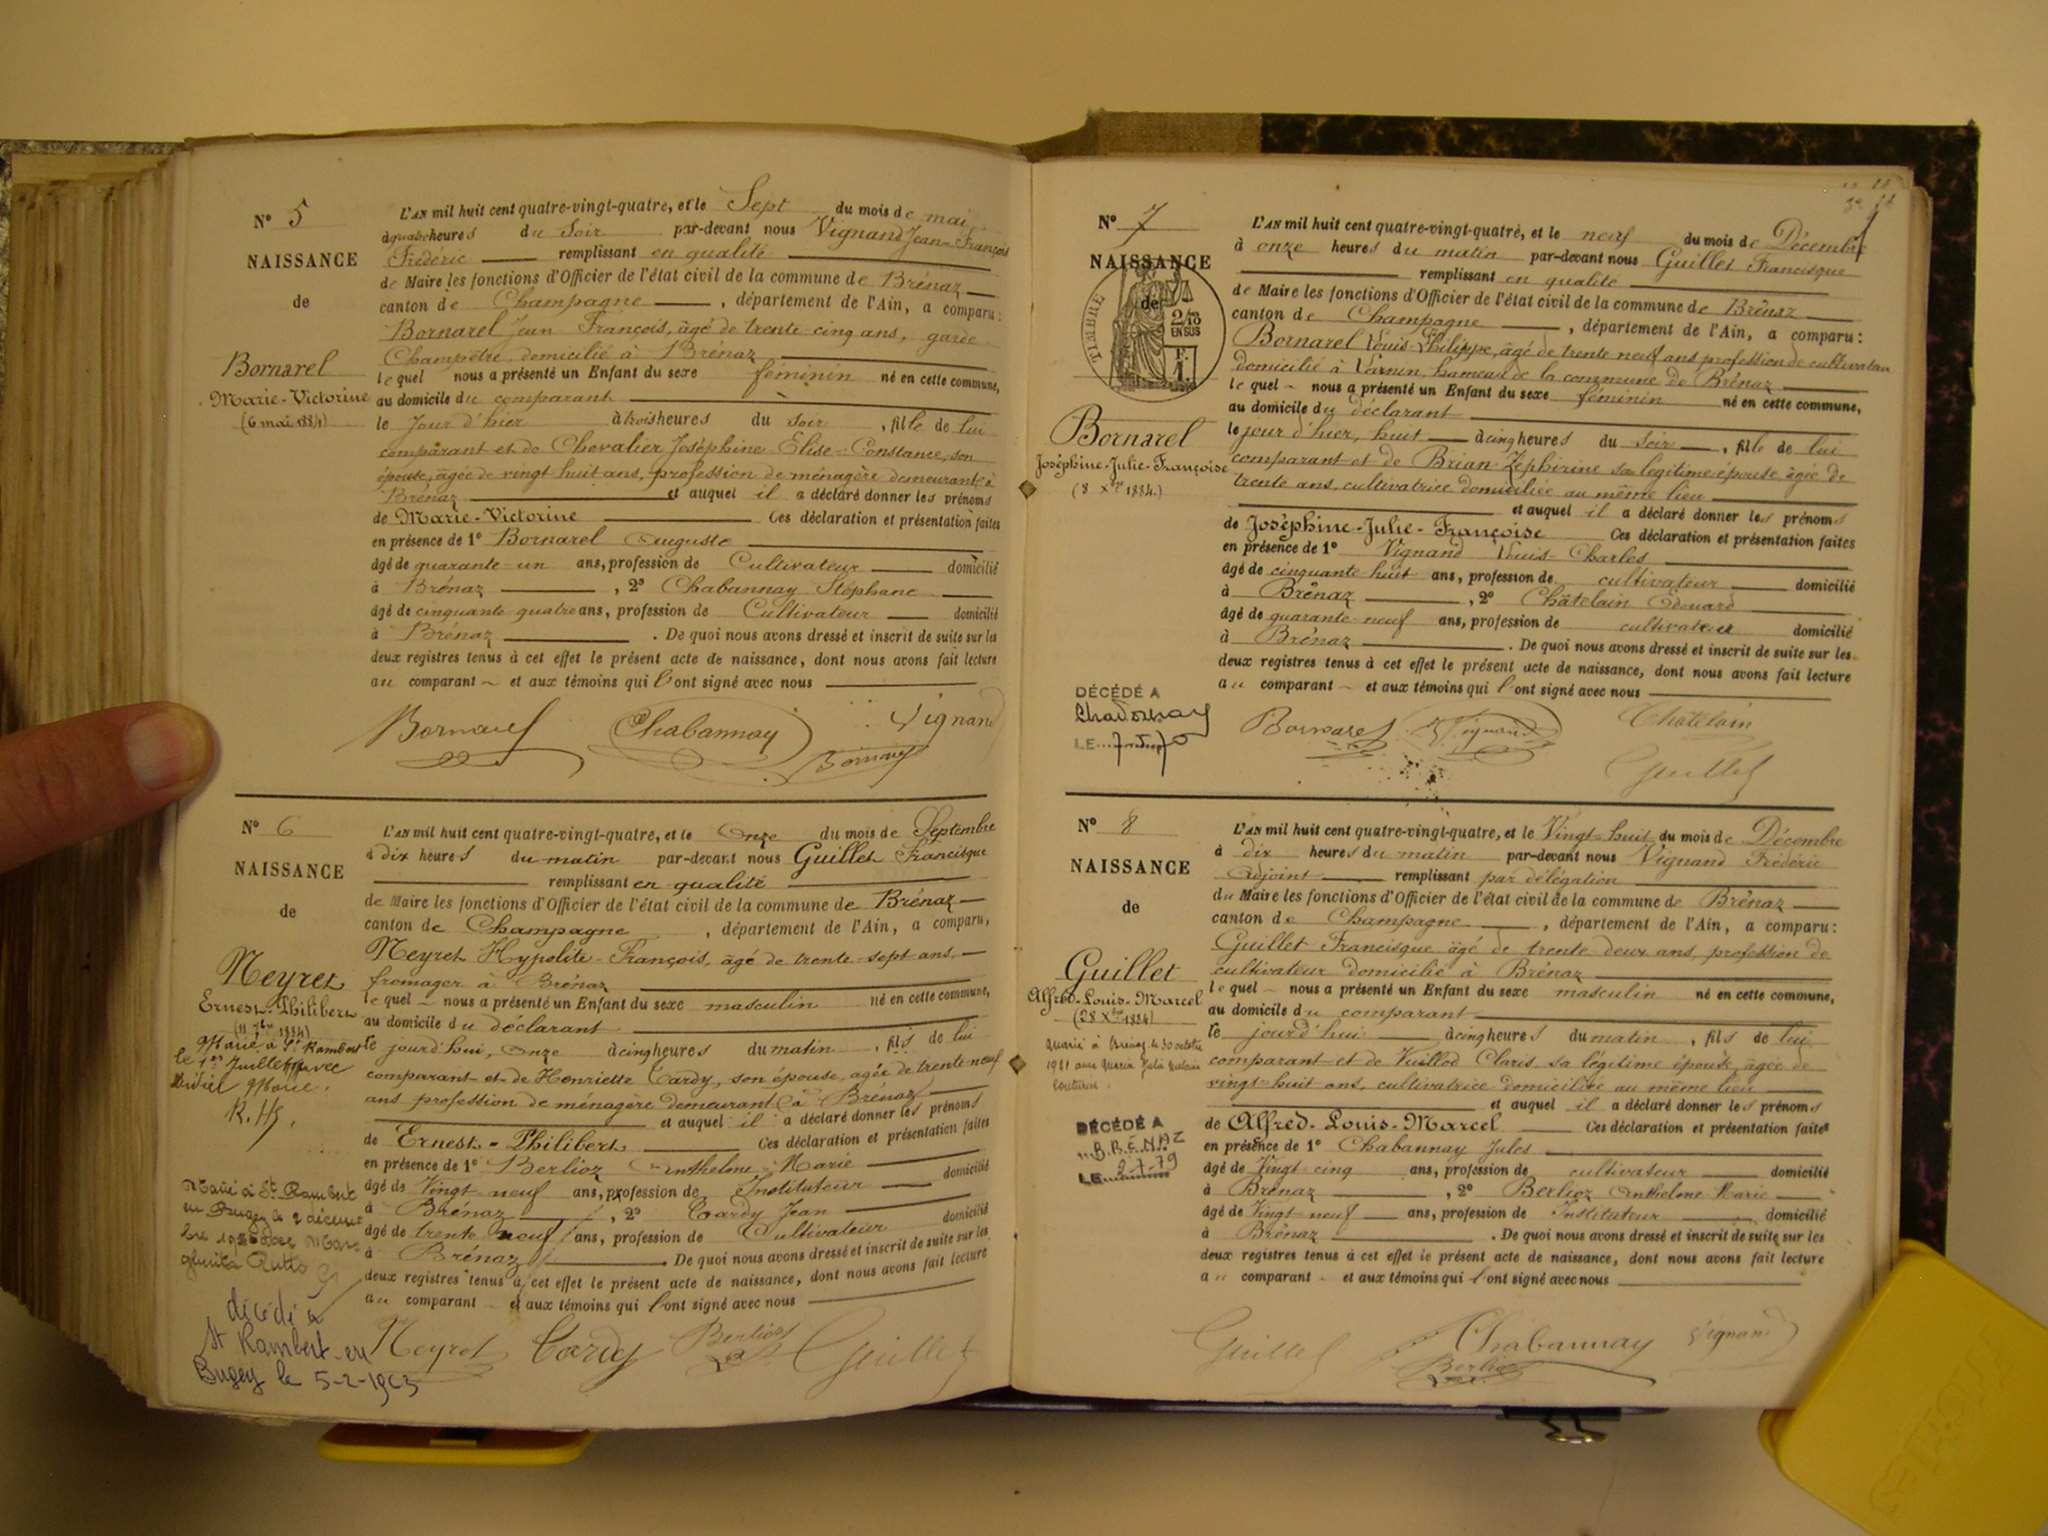 N° 5
NAISSANCE
de
Bornarel
Marie-Victorine
(6 mai 1884)
L'AN mil huit cent quatre-vingt-quatre, et le Sept du mois de mai
à quatre heures du Soir par-devant nous Vignand Jean-François
Frédéric remplissant en qualité
de Maire les fonctions d'Officier de l'état civil de la commune de Brénaz
canton de Champagne, département de l'Ain, a comparu:
Bornarel Jean François, âgé de trente cinq ans, garde
Champêtre domicilié à Brénaz
lequel nous a présenté un Enfant du sexe féminin né en cette commune,
au domicile du comparant
le Jour d'hier à trois heures du soir, fille de lui
comparant et de Chevalier Joséphine Elise-Constance, son
épouse, âgée de vingt huit ans, profession de ménagère demeurant à
Brénaz et auquel il a déclaré donner les prénoms
de Marie-Victorine Ces déclaration et présentation faites
en présence de 1° Bornarel Auguste
âgé de quarante-un ans, profession de Cultivateur domicilié
à Brénaz, 2° Chabannay Stéphane
âgé de cinquante quatre ans, profession de Cultivateur domicilié
à Brénaz. De quoi nous avons dressé et inscrit de suite sur les
deux registres tenus à cet effet le présent acte de naissance, dont nous avons fait lecture
au comparant et aux témoins qui l'ont signé avec nous
Bornarel Chabannay Vignand
Bornarel
N° 6
NAISSANCE
de
Neyret
Ernest-Philibert
(11 7bre 1884)
Marié à St Rambert
le 1er Juillet avec
Marie.
Marié à St Rambert
en Bugey le 2 décem
décédé à
St Rambert-en
Bugey le 5-2-1963
L'AN mil huit cent quatre-vingt-quatre, et le Onze du mois de Septembre
à dix heures du matin par-devant nous Guillet Francisque
remplissant en qualité
de Maire les fonctions d'Officier de l'état civil de la commune de Brénaz
canton de Champagne, département de l'Ain, a comparu,
Neyret Hypolite-François, âgé de trente-sept ans,
fromager à Brénaz
lequel nous a présenté un Enfant du sexe masculin né en cette commune,
au domicile du déclarant
le jourd'hui, onze à cinq heures du matin, fils de lui
comparant et de Henriette Cardy, son épouse, âgée de trente neuf
ans profession de ménagère demeurant à Brénaz
et auquel il a déclaré donner les prénoms
de Ernest-Philibert Ces déclaration et présentation faites
en présence de 1° Berlioz Anthelme-Marie
âgé de Vingt-neuf ans, profession de Instituteur domicilié
à Brénaz, 2° Cardy Jean
âgé de trente neuf ans, profession de Cultivateur domicilié
à Brénaz. De quoi nous avons dressé et inscrit de suite sur les
deux registres tenus à cet effet le présent acte de naissance, dont nous avons fait lecture
au comparant et aux témoins qui l'ont signé avec nous
Neyret Cardy Berlioz Guillet
N° 7
NAISSANCE
de
TIMBRE
2/10
EN SUS
Bornarel
Joséphine-Julie-Françoise
(8 Xbre 1884.)
DÉCÉDÉ A
LE
L'AN mil huit cent quatre-vingt-quatre, et le neuf du mois de Décembre
à onze heures du matin par-devant nous Guillet Francisque
remplissant en qualité
de Maire les fonctions d'Officier de l'état civil de la commune de Brénaz
canton de Champagne, département de l'Ain, a comparu:
Bornarel Louis-Philippe, âgé de trente neuf ans profession de cultivateur
domicilié à hameau de la commune de Brénaz
lequel nous a présenté un Enfant du sexe féminin né en cette commune,
au domicile du déclarant
le jour d'hier, huit à cinq heures du soir, fille de lui
comparant et de Brian Zéphirine sa légitime épouse âgée de
trente ans, cultivatrice domiciliée au même lieu
et auquel il a déclaré donner les prénoms
de Joséphine-Julie-Françoise Ces déclaration et présentation faites
en présence de 1° Vignand Louis-Charles
âgé de cinquante-huit ans, profession de cultivateur domicilié
à Brénaz, 2° Châtelain Edouard
âgé de quarante-neuf ans, profession de cultivateur domicilié
à Brénaz. De quoi nous avons dressé et inscrit de suite sur les
deux registres tenus à cet effet le présent acte de naissance, dont nous avons fait lecture
au comparant et aux témoins qui l'ont signé avec nous
Bornarel Vignand Châtelain
Guillet
N° 8
NAISSANCE
de
Guillet
Alfred-Louis-Marcel
(28 Xbre 1884)
Marié à Brénaz le 30 octobre
1911 avec Maria Julie
DÉCÉDÉ A
BRÉNAZ
LE 2-7-79
L'AN mil huit cent quatre-vingt-quatre, et le Vingt-huit du mois de Décembre
à dix heures du matin par-devant nous Vignand Frédéric
Adjoint remplissant par délégation
du Maire les fonctions d'Officier de l'état civil de la commune de Brénaz
canton de Champagne, département de l'Ain, a comparu:
Guillet Francisque âgé de trente-deux ans, profession de
cultivateur domicilié à Brénaz
lequel nous a présenté un Enfant du sexe masculin né en cette commune,
au domicile du comparant
le jourd'hui à cinq heures du matin, fils de lui
comparant et de Vuillod Claris sa légitime épouse âgée de
vingt-huit ans, cultivatrice domiciliée au même lieu
et auquel il a déclaré donner les prénoms
de Alfred-Louis-Marcel Ces déclaration et présentation faites
en présence de 1° Chabannay Jules
âgé de Vingt cinq ans, profession de cultivateur domicilié
à Brénaz, 2° Berlioz Anthelme Marie
âgé de Vingt neuf ans, profession de Instituteur domicilié
à Brénaz. De quoi nous avons dressé et inscrit de suite sur les
deux registres tenus à cet effet le présent acte de naissance, dont nous avons fait lecture
au comparant et aux témoins qui l'ont signé avec nous
Guillet Chabannay Vignand
Berlioz